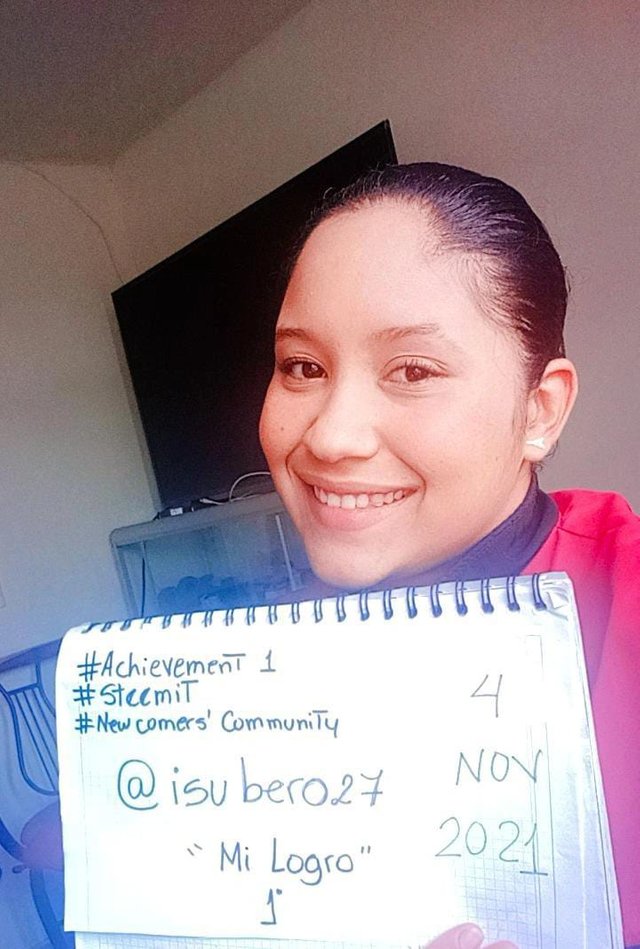 #Achievement 1
#SteemiT
#Newcomers' CommuniTy
@isubero27
"Mi Logro"
1°
4
NOV
2021